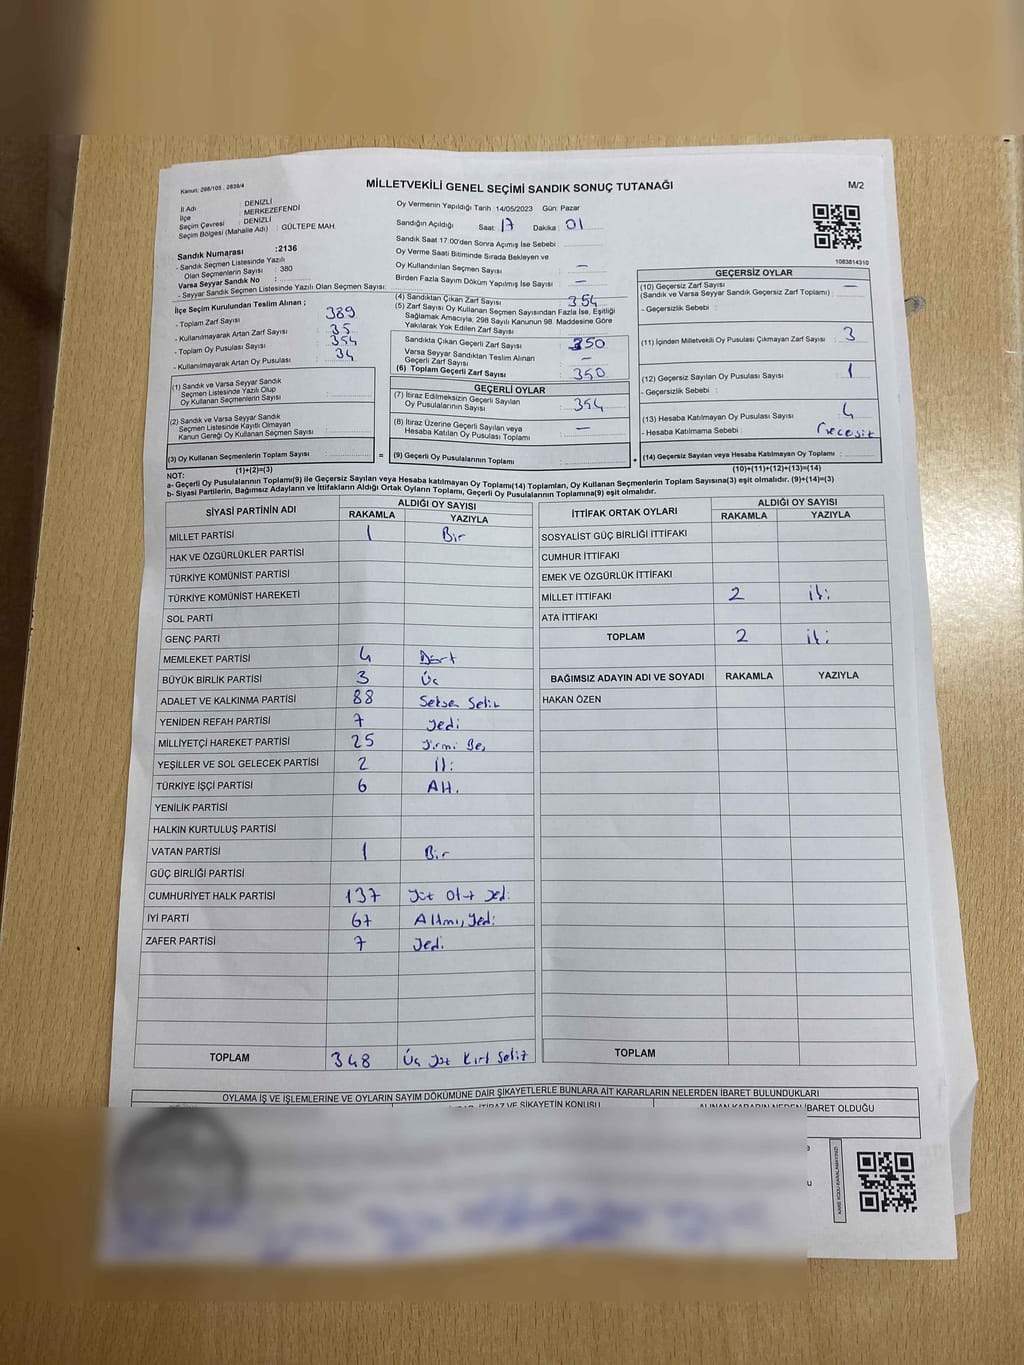 Kanun: 298/105 , 2839/4
MİLLETVEKİLİ GENEL SEÇİMİ SANDIK SONUÇ TUTANAĞI
M/2
İl Adı : DENİZLİ
İlçe : MERKEZEFENDİ
Seçim Çevresi : DENİZLİ
Seçim Bölgesi (Mahalle Adı) : GÜLTEPE MAH.
Sandık Numarası :2136
- Sandık Seçmen Listesinde Yazılı
Olan Seçmenlerin Sayısı : 380
Varsa Seyyar Sandık No :
- Seyyar Sandık Seçmen Listesinde Yazılı Olan Seçmen Sayısı:
Oy Vermenin Yapıldığı Tarih 14/05/2023 Gün: Pazar
Sandığın Açıldığı Saat: 17 Dakika: 01
Sandık Saat 17:00'den Sonra Açmış İse Sebebi :
Oy Verme Saati Bitiminde Sırada Bekleyen ve
Oy Kullandırılan Seçmen Sayısı –
Birden Fazla Sayım Döküm Yapılmış İse Sayısı –
1083814310
İlçe Seçim Kurulundan Teslim Alınan ;
- Toplam Zarf Sayısı 389
- Kullanılmayarak Artan Zarf Sayısı 35
- Toplam Oy Pusulası Sayısı 354
- Kullanılmayarak Artan Oy Pusulası 34
(1) Sandık ve Varsa Seyyar Sandık
Seçmen Listesinde Yazılı Olup
Oy Kullanan Seçmenlerin Sayısı
(2) Sandık ve Varsa Seyyar Sandık
Seçmen Listesinde Kayıtlı Olmayan
Kanun Gereği Oy Kullanan Seçmen Sayısı :
(3) Oy Kullanan Seçmenlerin Toplam Sayısı :
(1)+(2)=(3)
(4) Sandıktan Çıkan Zarf Sayısı 354
(5) Zarf Sayısı Oy Kullanan Seçmen Sayısından Fazla İse, Eşitliği
Sağlamak Amacıyla; 298 Sayılı Kanunun 98. Maddesine Göre
Yakılarak Yok Edilen Zarf Sayısı :
Sandıkta Çıkan Geçerli Zarf Sayısı 350
Varsa Seyyar Sandıktan Teslim Alınan
Geçerli Zarf Sayısı –
(6) Toplam Geçerli Zarf Sayısı 350
GEÇERLİ OYLAR
(7) İtiraz Edilmeksizin Geçerli Sayılan
Oy Pusulalarının Sayısı : 354
(8) İtiraz Üzerine Geçerli Sayılan veya
Hesaba Katılan Oy Pusulası Toplamı –
= (9) Geçerli Oy Pusulalarının Toplamı :
GEÇERSİZ OYLAR
(10) Geçersiz Zarf Sayısı –
(Sandık ve Varsa Seyyar Sandık Geçersiz Zarf Toplamı) :
- Geçersizlik Sebebi :
(11) İçinden Milletvekili Oy Pusulası Çıkmayan Zarf Sayısı : 3
(12) Geçersiz Sayılan Oy Pusulası Sayısı 1
- Geçersizlik Sebebi :
(13) Hesaba Katılmayan Oy Pusulası Sayısı 4
- Hesaba Katılmama Sebebi :
+ (14) Geçersiz Sayılan veya Hesaba Katılmayan Oy Toplamı :
(10)+(11)+(12)+(13)=(14)
NOT:
a- Geçerli Oy Pusulalarının Toplamı(9) ile Geçersiz Sayılan veya Hesaba katılmayan Oy Toplamı(14) Toplamları, Oy Kullanan Seçmenlerin Toplam Sayısına(3) eşit olmalıdır. (9)+(14)=(3)
b- Siyasi Partilerin, Bağımsız Adayların ve İttifakların Aldığı Ortak Oyların Toplamı, Geçerli Oy Pusulalarının Toplamına(9) eşit olmalıdır.
SİYASİ PARTİNİN ADI ALDIĞI OY SAYISI
RAKAMLA YAZIYLA
MİLLET PARTİSİ 1 Bir
HAK VE ÖZGÜRLÜKLER PARTİSİ
TÜRKİYE KOMÜNİST PARTİSİ
TÜRKİYE KOMÜNİST HAREKETİ
SOL PARTİ
GENÇ PARTİ
MEMLEKET PARTİSİ 4 Dört
BÜYÜK BİRLİK PARTİSİ 3 Üç
ADALET VE KALKINMA PARTİSİ 88 Seksen Sekiz
YENİDEN REFAH PARTİSİ 7 Yedi
MİLLİYETÇİ HAREKET PARTİSİ 25 Yirmi Beş
YEŞİLLER VE SOL GELECEK PARTİSİ 2 İki
TÜRKİYE İŞÇİ PARTİSİ 6 Altı
YENİLİK PARTİSİ
HALKIN KURTULUŞ PARTİSİ
VATAN PARTİSİ 1 Bir
GÜÇ BİRLİĞİ PARTİSİ
CUMHURİYET HALK PARTİSİ 137 Yüz Otuz Yedi
İYİ PARTİ 67 Altmış Yedi
ZAFER PARTİSİ 7 Yedi
TOPLAM 348 Üç Yüz Kırk Sekiz
İTTİFAK ORTAK OYLARI ALDIĞI OY SAYISI
RAKAMLA YAZIYLA
SOSYALİST GÜÇ BİRLİĞİ İTTİFAKI
CUMHUR İTTİFAKI
EMEK VE ÖZGÜRLÜK İTTİFAKI
MİLLET İTTİFAKI 2 iki
ATA İTTİFAKI
TOPLAM 2 iki
BAĞIMSIZ ADAYIN ADI VE SOYADI RAKAMLA YAZIYLA
HAKAN ÖZEN
TOPLAM
OYLAMA İŞ VE İŞLEMLERİNE VE OYLARIN SAYIM DÖKÜMÜNE DAİR ŞİKAYETLERLE BUNLARA AİT KARARLARIN NELERDEN İBARET BULUNDUKLARI
İTİRAZ VE ŞİKAYETİN KONUSU ALINAN KARARIN NEDEN İBARET OLDUĞU